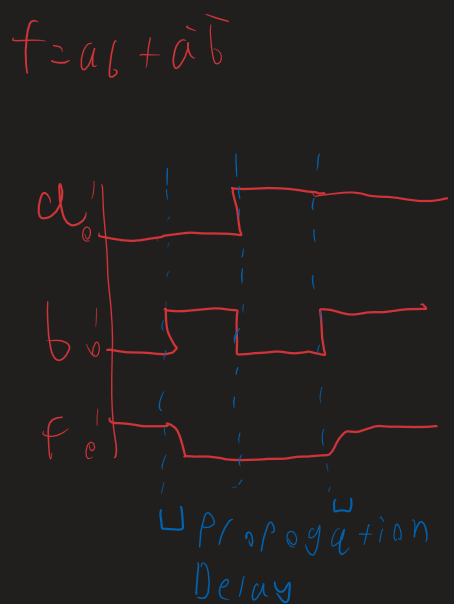 f = ab + āb̄
a 1
0
b 1
0
f 1
0
Propogation
Delay